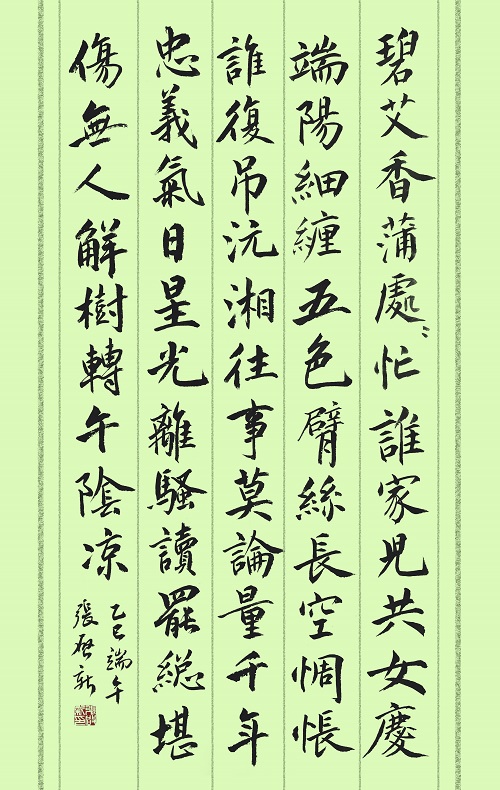 碧艾香蒲處〻忙誰家児共女慶
端陽細纏五色臂絲長空惆悵
誰復吊沅湘往事莫論量千年
忠義氣日星光離騷讀罷總堪
傷無人解樹轉午陰凉
乙巳端午
張啟新